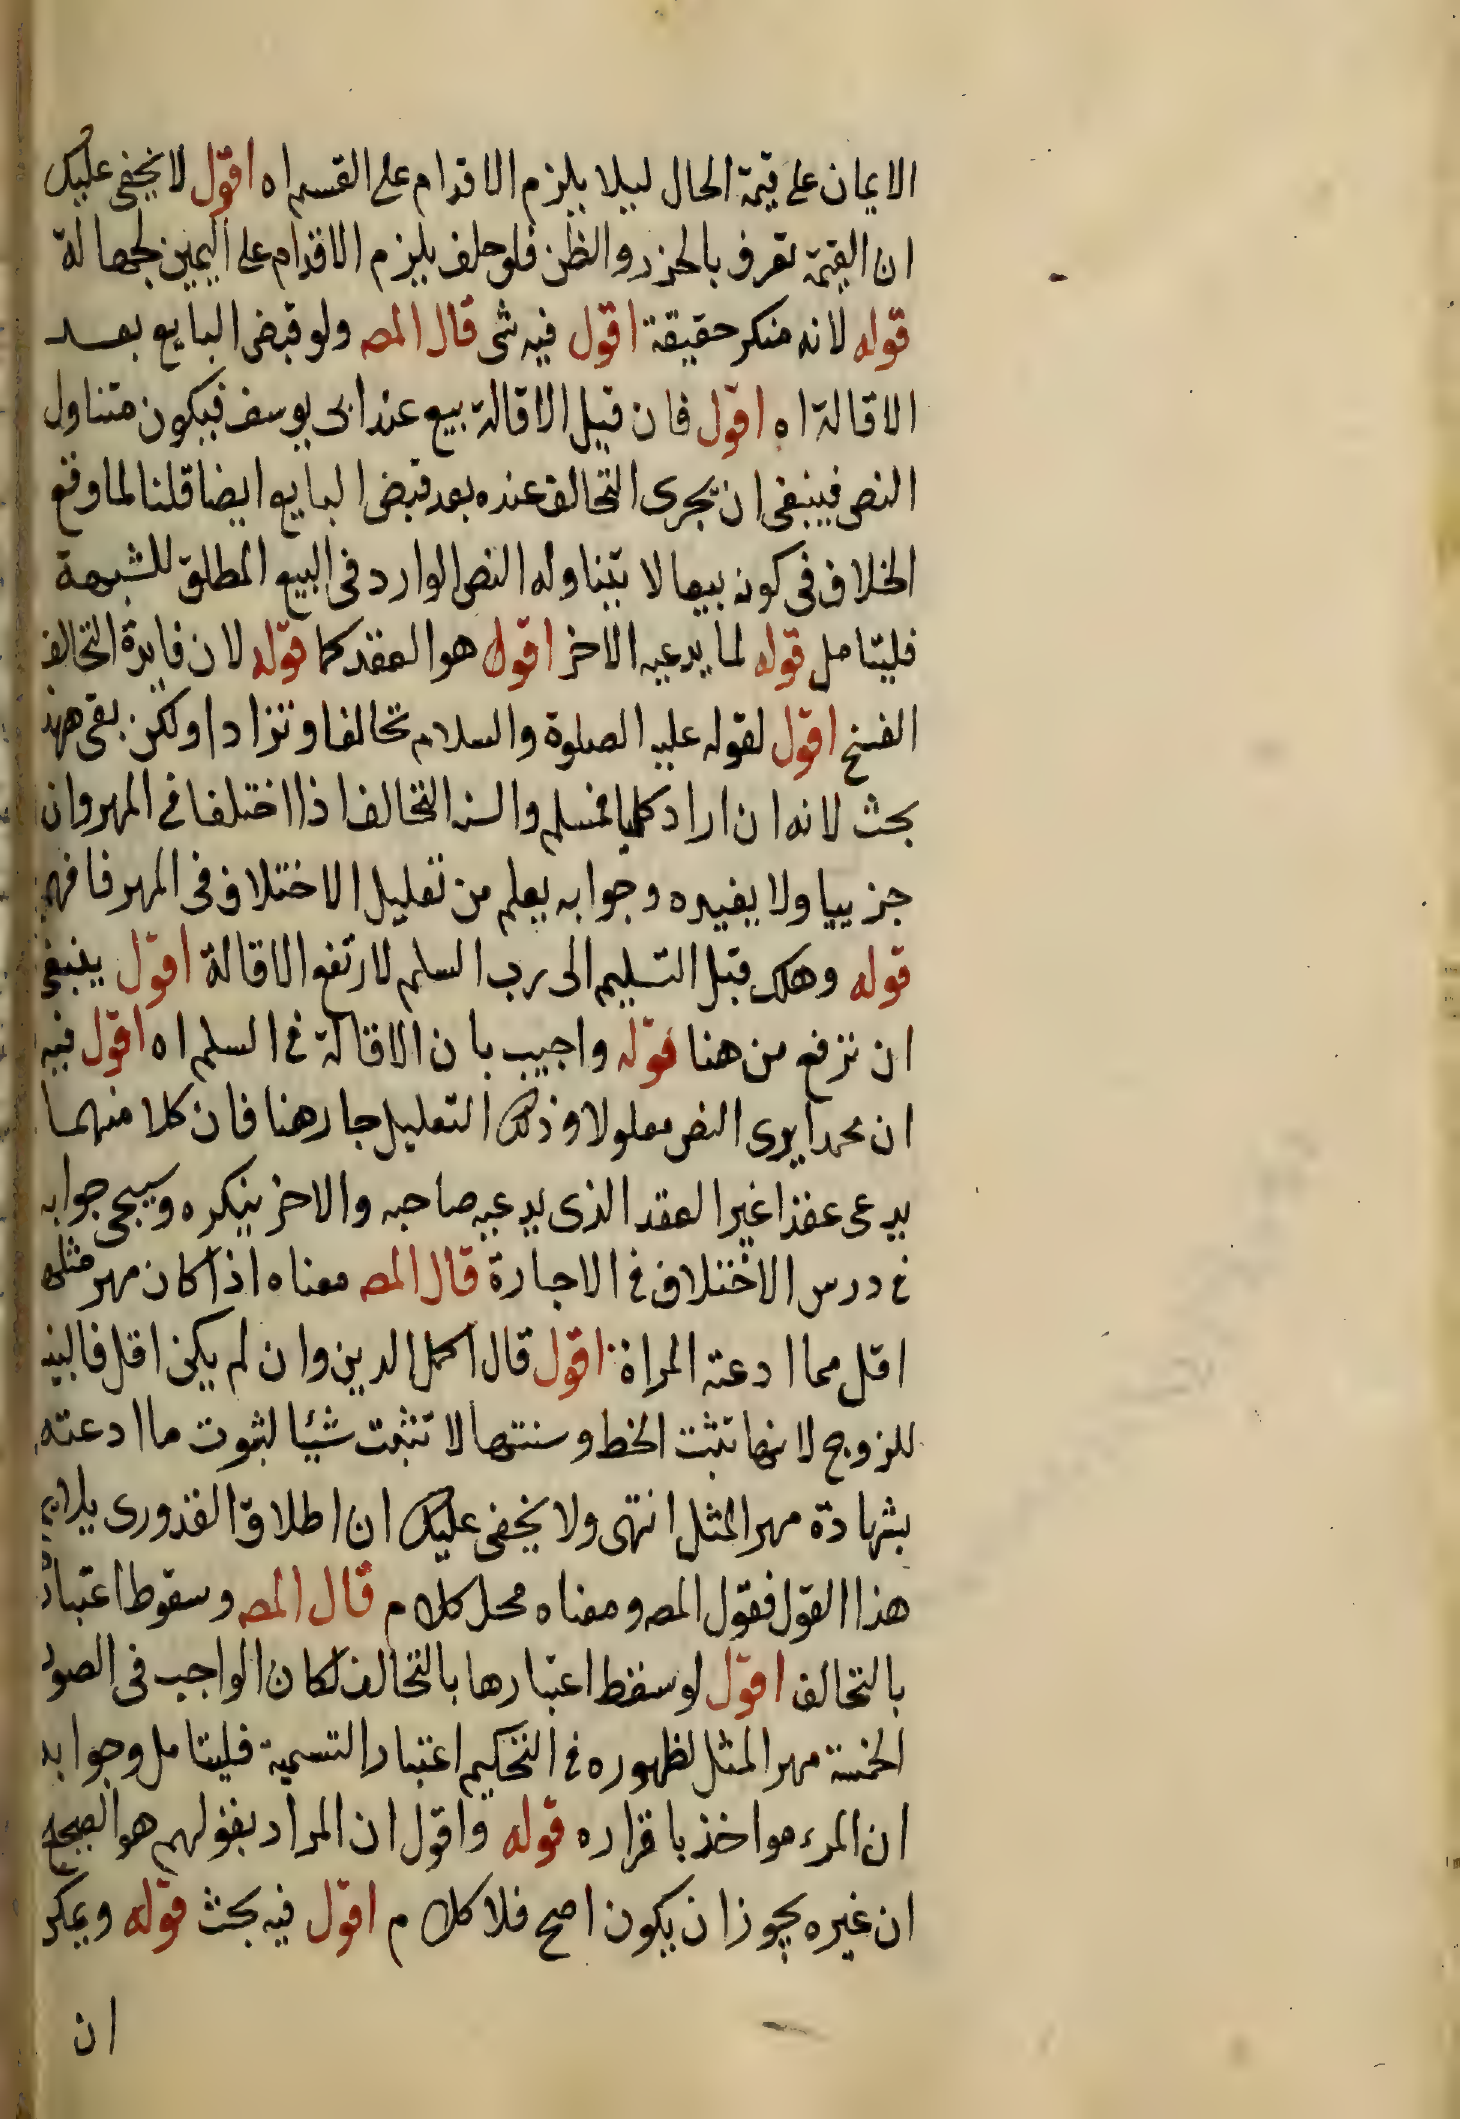 الايمان على قيمة الحال ليلا يلزم الاقدام على القسم اه اقول لا يخفى عليك
ان القيمة تعرف بالحزر والظن فلو حلف يلزم الاقدام على اليمين لجهالة
قوله لانه منكر حقيقة اقول فيه شى قال المصه ولو قبض البايع بعد
الاقالة اه اقول فان قيل الاقالة بيع عند ابى يوسف فيكون متناول
النص فينبغى ان يجرى التحالف عنده بعد قبض البايع ايضا قلنا لما وقع
الخلاف فى كونه بيعا لا يتناوله النص الوارد فى البيع المطلق للشبهة
فليتامل قوله لما يدعيه الاخر اقول هو العقد كما قوله لان فايدة التحالف
الفسخ اقول لقوله عليه الصلوة والسلام تحالفا وترادا ولكن بقى ههنا
بحث لانه ان اراد كليا فمسلم والسند التحالف اذا اختلفا فى المهر وان
جزييا ولا يفيده وجوابه يعلم من تعليل الاختلاف فى المهر فافهم
قوله وهلك قبل التسليم الى رب السلم لا رتفع الاقالة اقول ينبغى
ان ترفع من هنا قوله واجيب بان الاقالة فى السلم اه اقول فيه
ان محمدا يرى النص معلولا وذلك التعليل جار هنا فان كلا منهما
يدعى عقدا غير العقد الذى يدعيه صاحبه والاخر ينكره وسيجى جوابه
فى درس الاختلاف فى الاجارة قال المصه معناه اذا كان مهر مثلها
اقل مما ادعته المراة اقول قال اكمل الدين وان لم يكن اقل فالبينة
للزوج لانها تثبت الحط وبينتها لا تثبت شيئا لثبوت ما ادعته
بشهادة مهر المثل انتهى ولا يخفى عليك ان اطلاق القدورى يلايم
هذا القول فقول المصه ومعناه محل كلام قال المصه وسقوط اعتبار
بالتحالف اقول لو سقط اعتبارها بالتحالف لكان الواجب فى الصور
الخمسة مهر المثل لظهوره فى التحكيم اعتبار التسمية فليتامل وجوابه
ان المرء مواخذ باقراره قوله واقول ان المراد بقولهم هو الصحيح
ان غيره يجوز ان يكون اصح فلا كلام اقول فيه بحث قوله ويمكن
ان